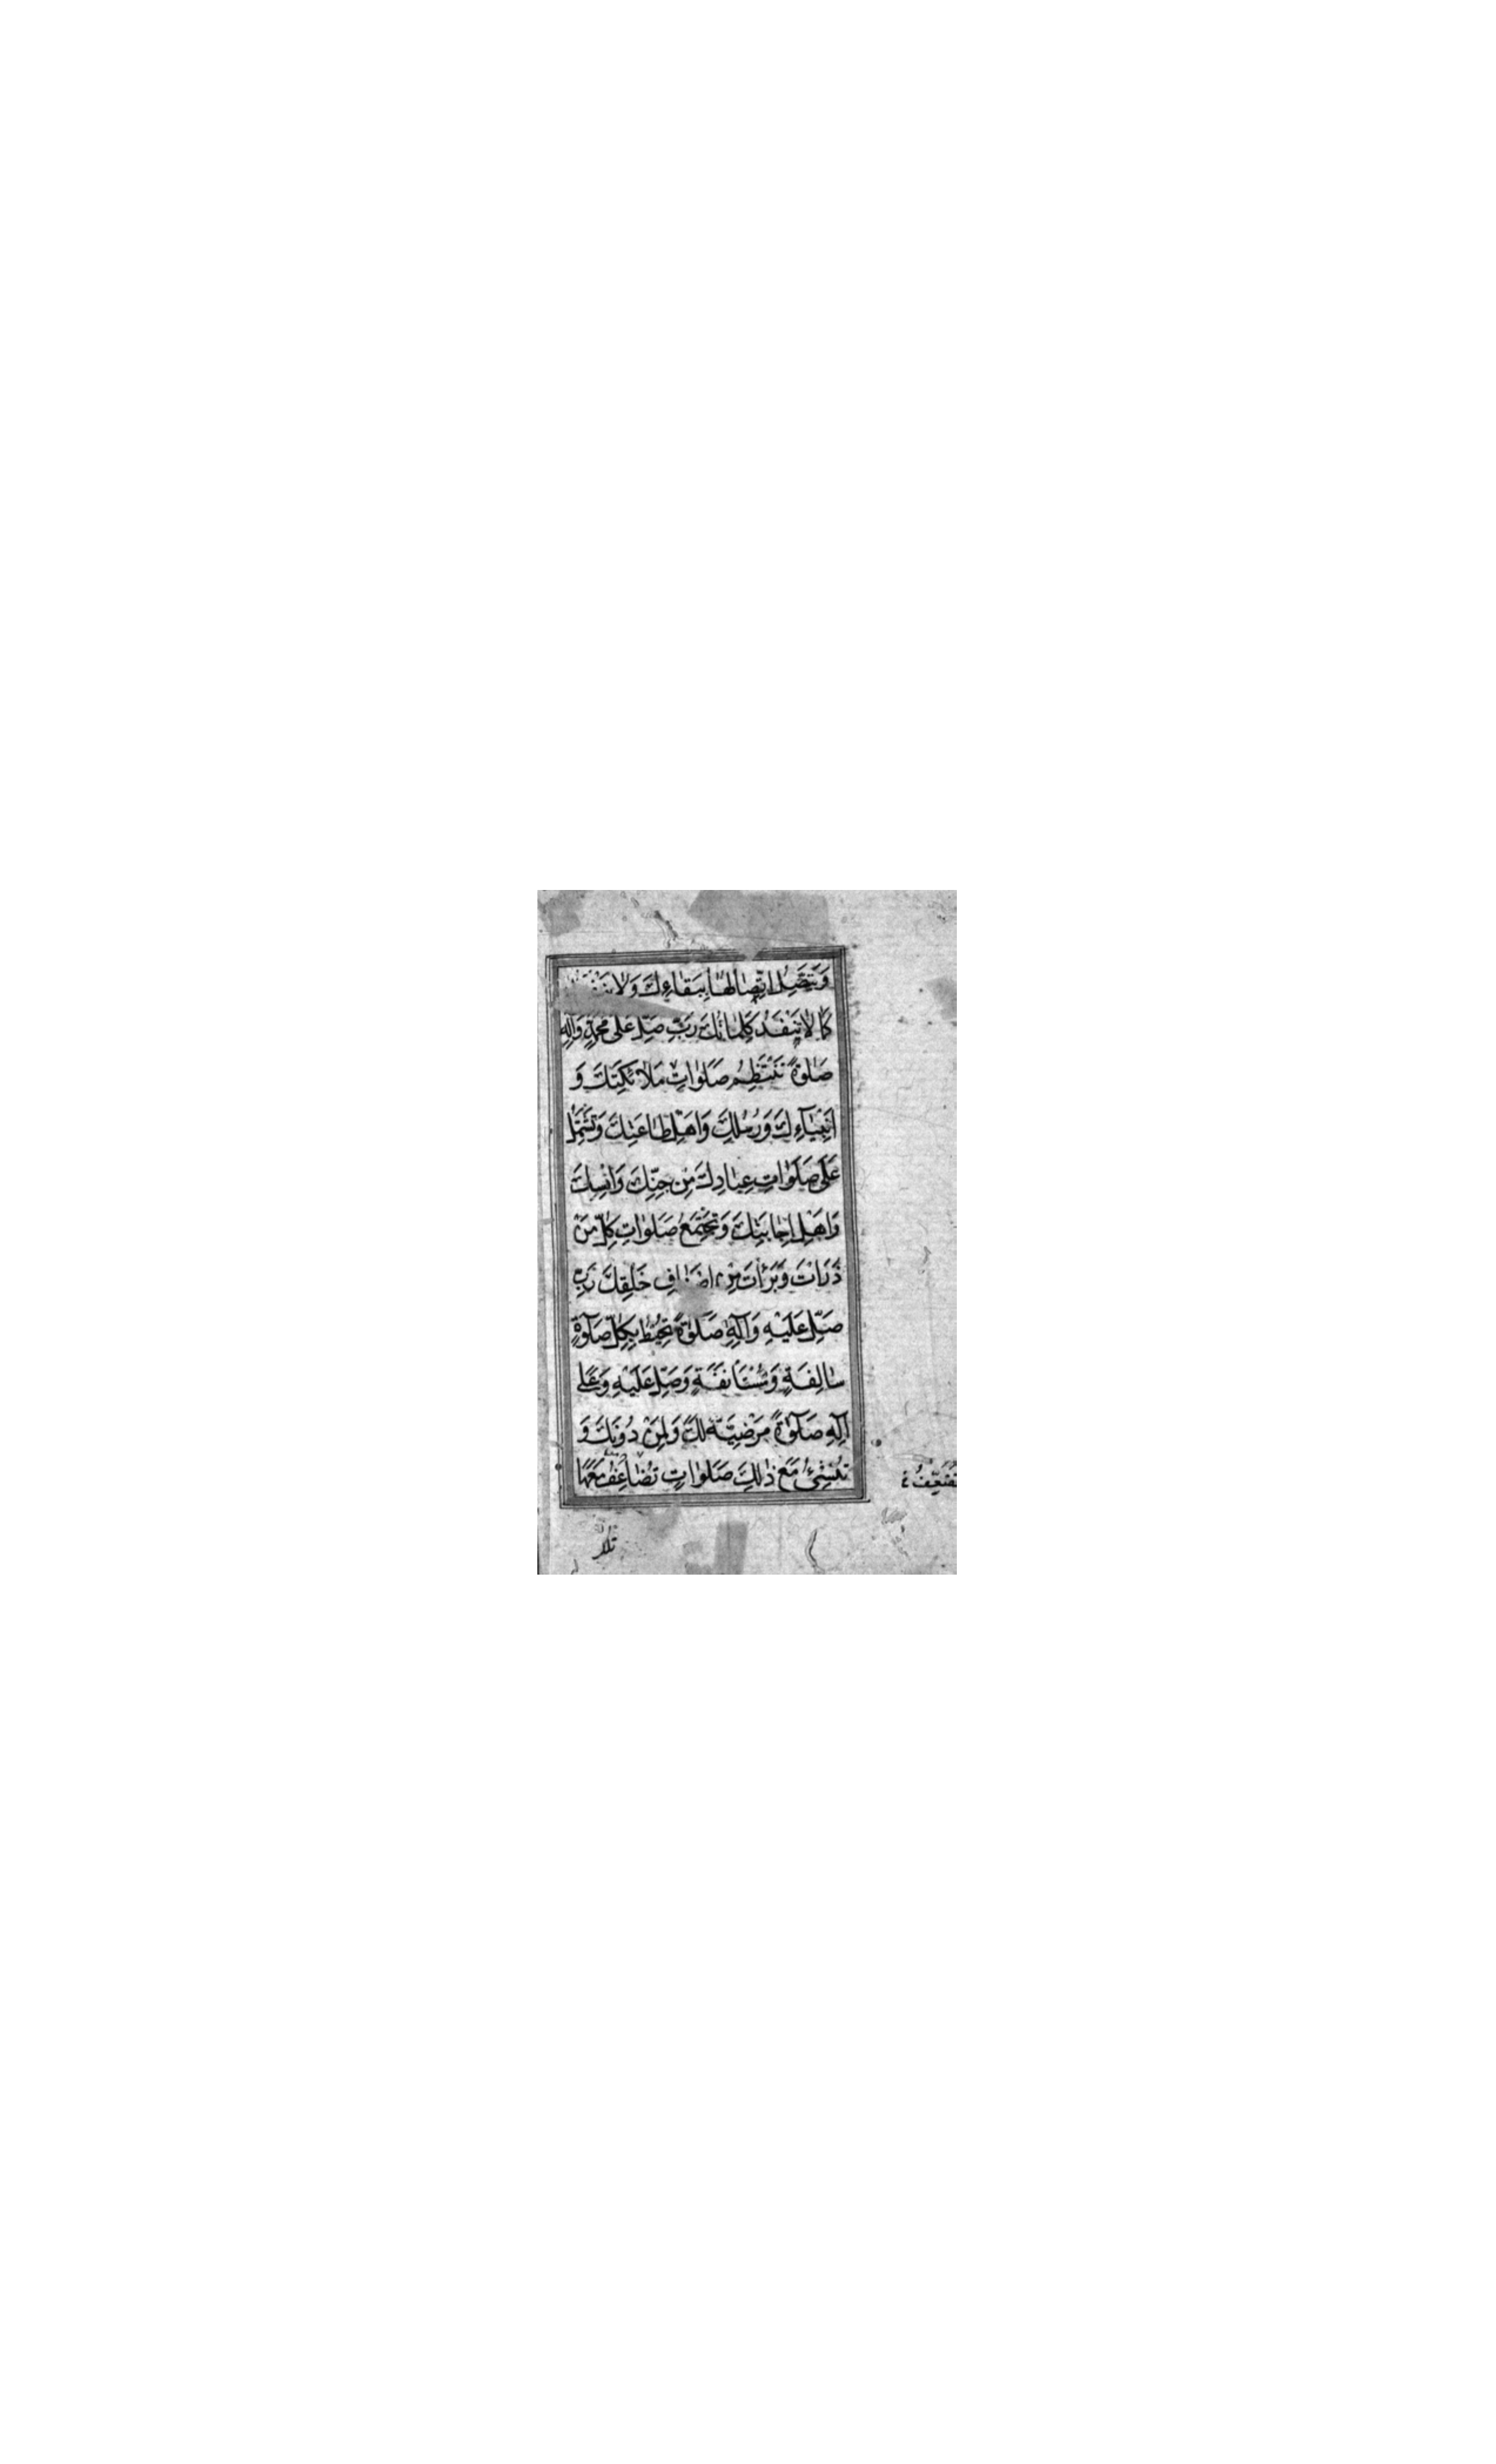 وَيَتَّصِلُ اتِّصٰالُهٰا بِبَقٰاءِكَ وَلٰا يَنْفَدُ
كَمٰا لٰا تَنْفَدُ كَلِمٰاتُكَ رَبِّ صَلِّ عَلٰى مُحَمَّدٍ وَآلِهِ
صَلٰوةً تَنْتَظِمُ صَلَوٰاتِ مَلٰائِكَتِكَ وَ
اَنْبِيٰآءِكَ وَرُسُلِكَ وَاَهْلِ طٰاعَتِكَ وَتَشْتَمِلُ
عَلٰى صَلَوٰاتِ عِبٰادِكَ مِنْ جِنِّكَ وَاِنْسِكَ
وَاَهْلِ اِجٰابَتِكَ وَتَجْتَمِعُ صَلَوٰاتِ كُلِّ مَنْ
ذَرَاْتَ وَبَرَاْتَ مِنْ اَصْنٰافِ خَلْقِكَ رَبِّ
صَلِّ عَلَيْهِ وَآلِهِ صَلٰوةً تُحِيْطُ بِكُلِّ صَلٰوةٍ
سٰالِفَةٍ وَمُسْتَاْنَفَةٍ وَصَلِّ عَلَيْهِ وَعَلٰى
آلِهِ صَلٰوةً مَرْضِيَّةً لَكَ وَلِمَنْ دُونَكَ وَ
تُنْشِئُ مَعَ ذٰلِكَ صَلَوٰاتٍ تُضٰاعِفُ مَعَهٰا
تلك